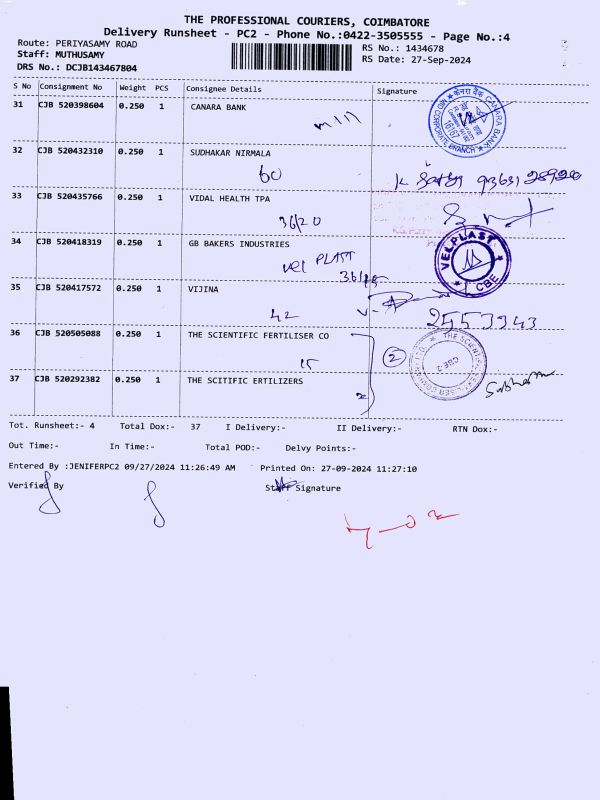 THE PROFESSIONAL COURIERS, COIMBATORE
Delivery Runsheet - PC2 - Phone No.:0422-3505555 - Page No.:4
Route: PERIYASAMY ROAD RS No.: 1434678
Staff: MUTHUSAMY RS Date: 27-Sep-2024
DRS No.: DCJB143467804
S No Consignment No Weight PCS Consignee Details Signature
31 CJB 520398604 0.250 1 CANARA BANK
केनरा बैंक CANARA BANK
CORPORATE BRANCH
32 CJB 520432310 0.250 1 SUDHAKAR NIRMALA
60
33 CJB 520435766 0.250 1 VIDAL HEALTH TPA
36/20
34 CJB 520418319 0.250 1 GB BAKERS INDUSTRIES
vel PLAST
VELPLAST
CBE
35 CJB 520417572 0.250 1 VIJINA
42
2553943
36 CJB 520505088 0.250 1 THE SCIENTIFIC FERTILISER CO
15
2
CBE-2
37 CJB 520292382 0.250 1 THE SCITIFIC ERTILIZERS
Tot. Runsheet:- 4 Total Dox:- 37 I Delivery:- II Delivery:- RTN Dox:-
Out Time:- In Time:- Total POD:- Delvy Points:-
Entered By :JENIFERPC2 09/27/2024 11:26:49 AM Printed On: 27-09-2024 11:27:10
Verified By Staff Signature